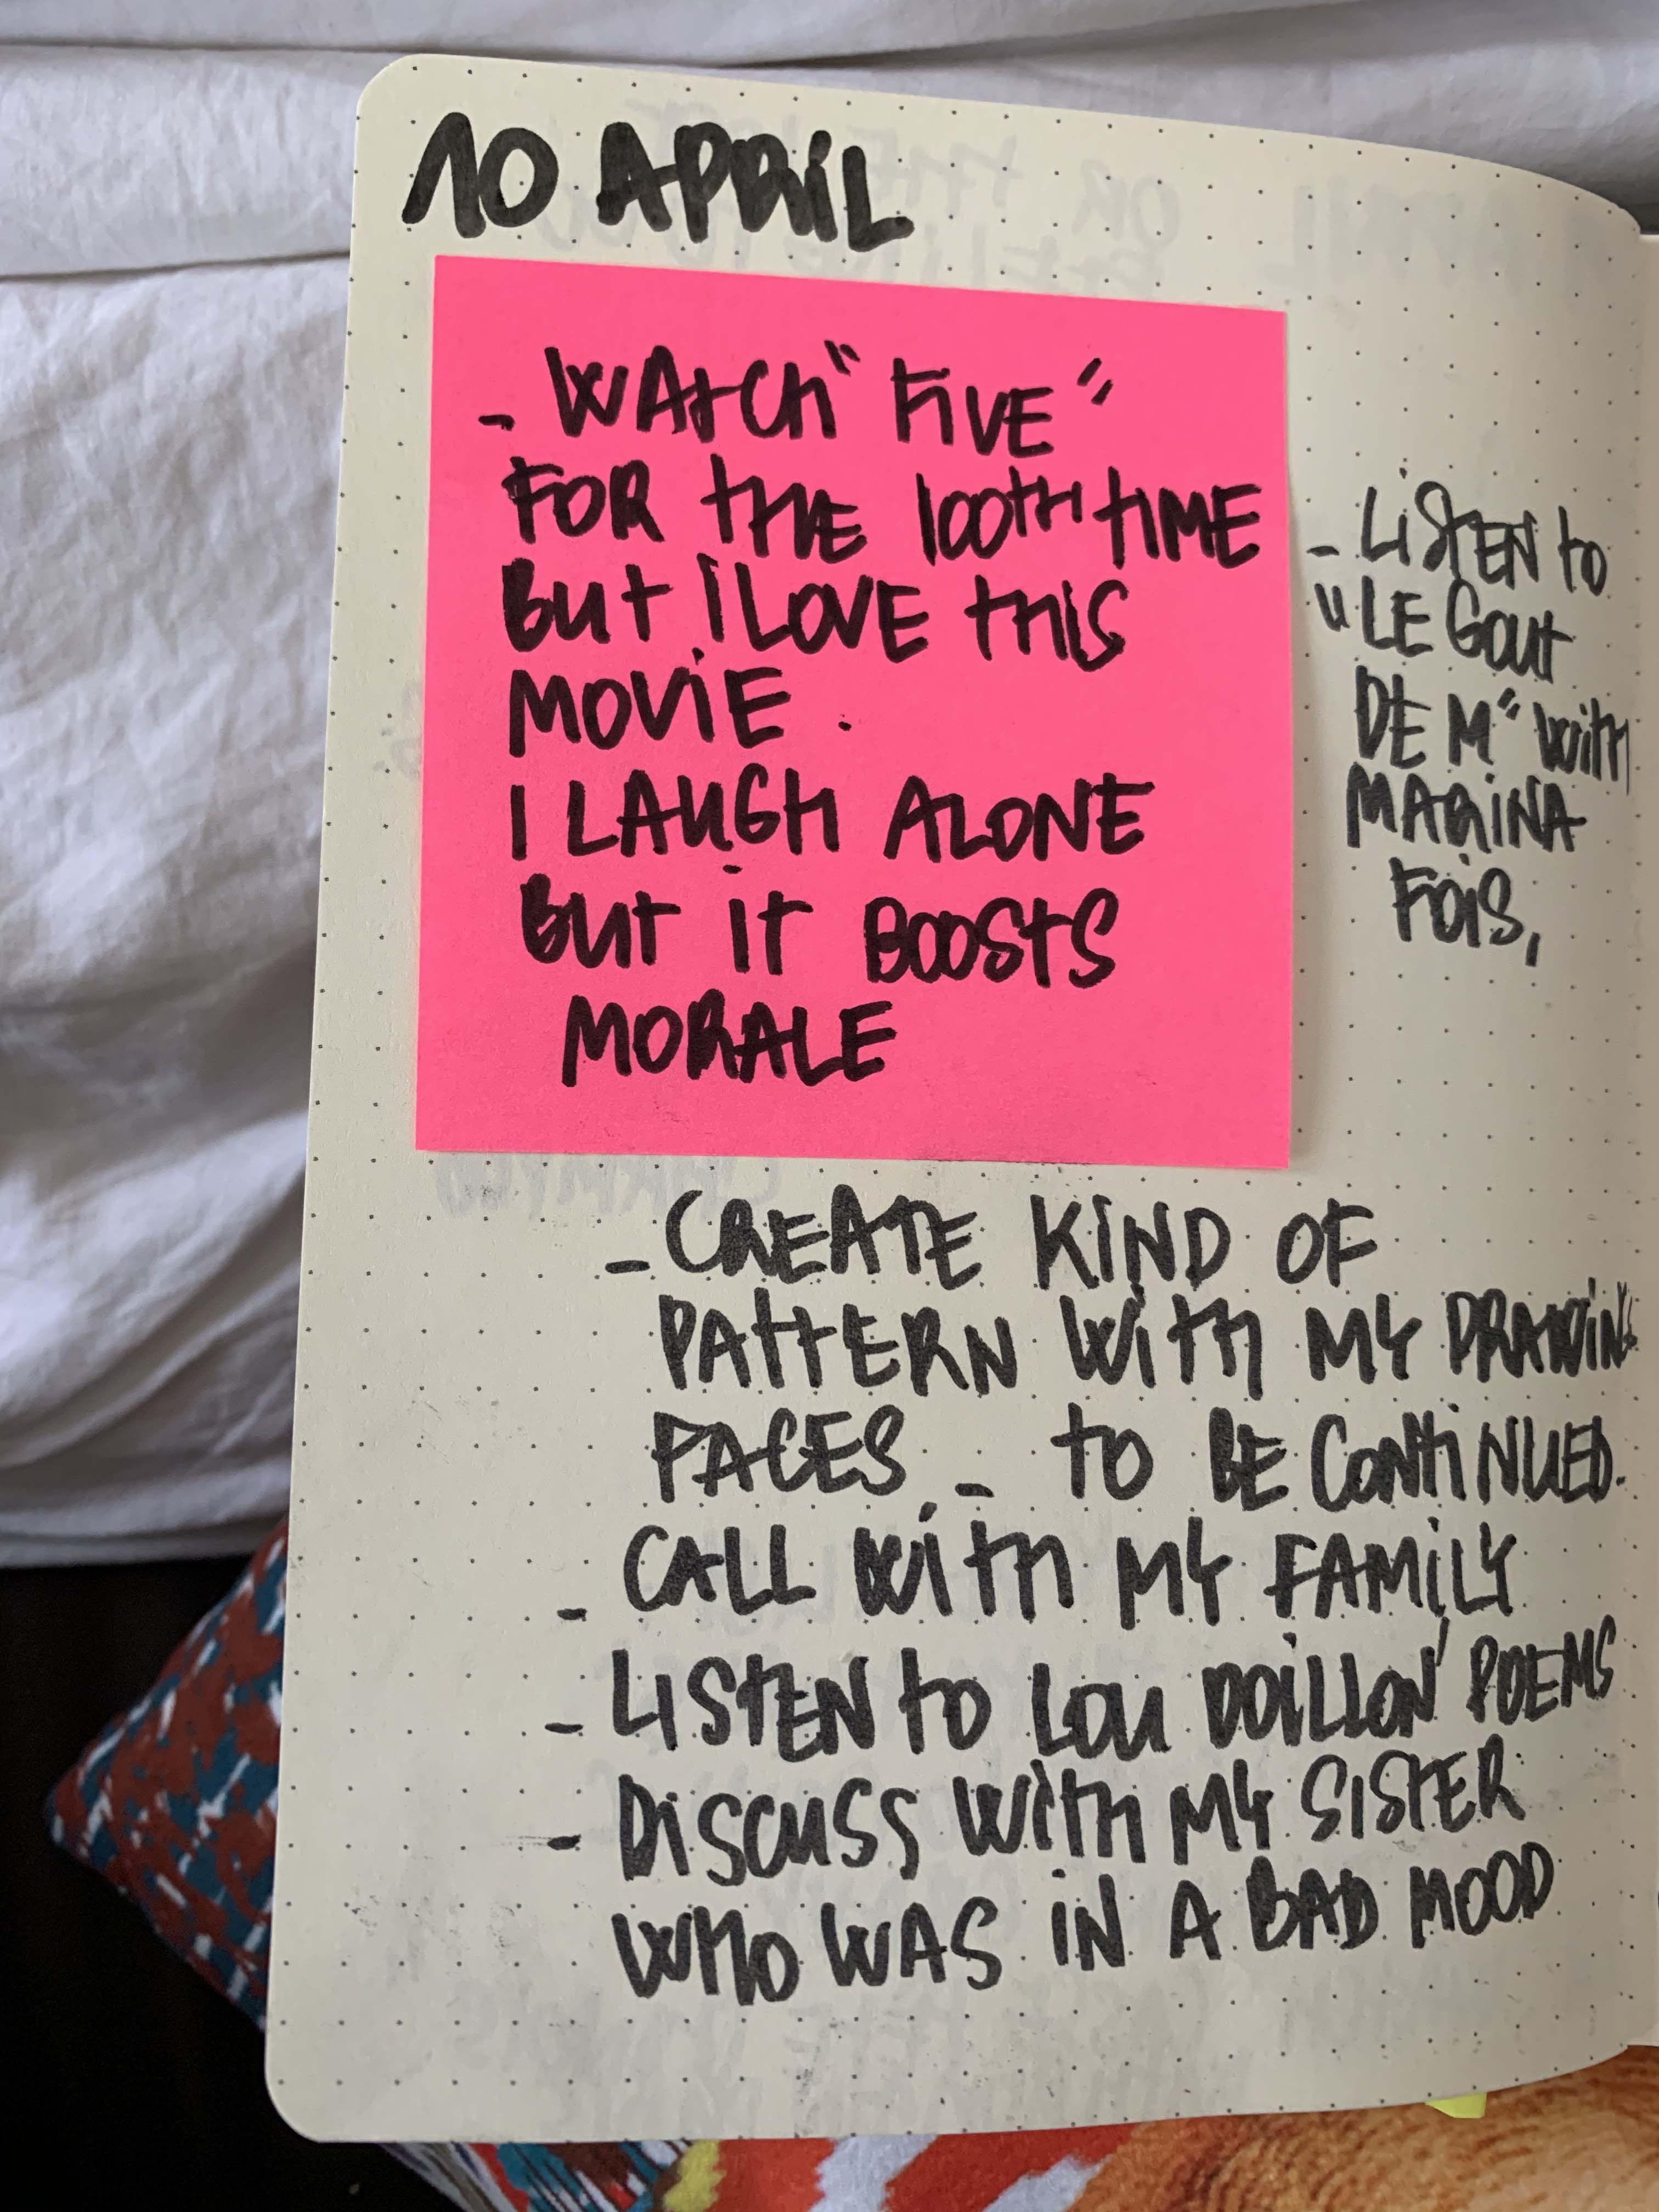 10 APRiL
- WATCH "FiVE"
FOR THE 100TH TIME
BUT I LOVE THIS
MOViE.
I LAUGH ALONE
BUT IT BOOSTS
MORALE
- LiSTEN TO
"LE GOUT
DE M" WiTH
MARiNA
FOIS,
- CREATE KiND OF
PATTERN WiTH MY DRAWiNGS
FACES - TO BE CONTiNUED.
- CALL WiTH MY FAMiLY
- LISTEN TO LOU DOiLLON' POEMS
- DiSCUSS WiTH MY SISTER
WHO WAS IN A BAD MOOD